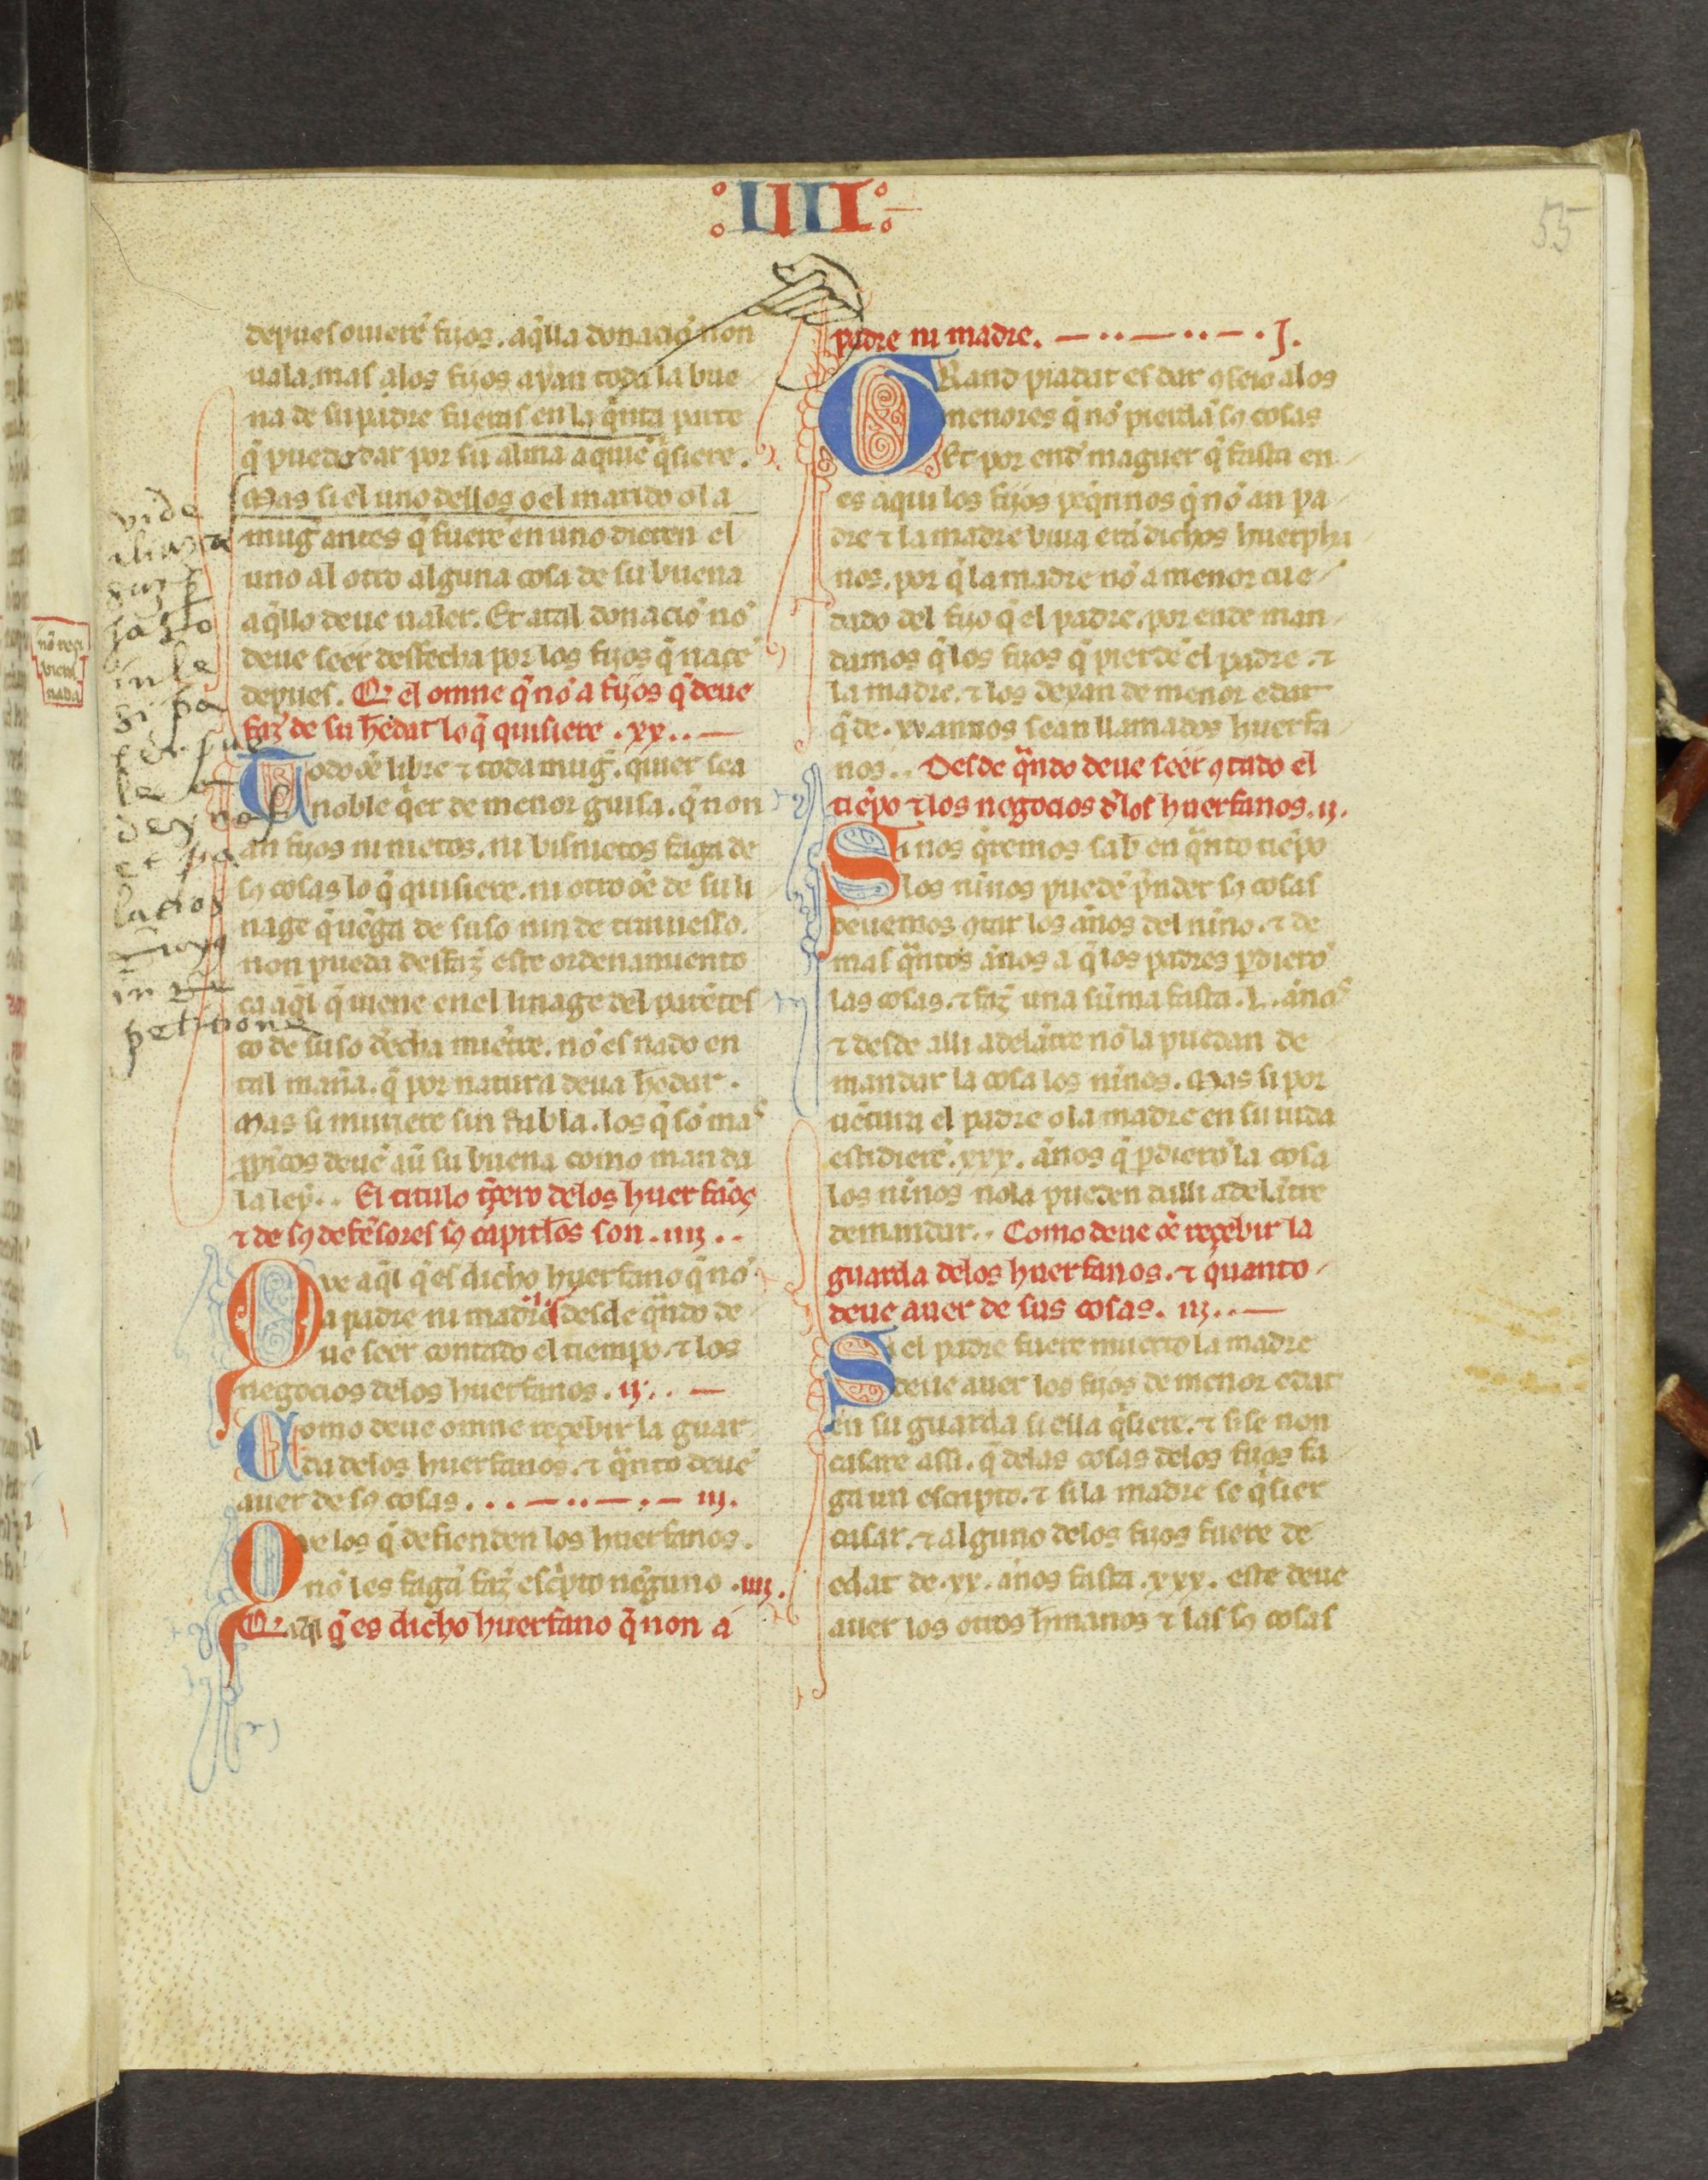 :IIII:
55
depues ouierẽ fijos. aq̃lla donaciõ non
uala. mas alos fijos ayan toda la bue
na de su padre fueras en la q̃nta parte
q̃ puede dar por su alma a quiẽ q̃siere.
Mas si el uno dellos o el marido o la
mug̃ antes q̃ fuerẽ en uno dieren el
uno al otro alguna cosa de su buena
aq̃llo deue ualer. Et atal donaciõ nõ
deue seer desfecha por los fijos q̃ nacẽ
depues. Q̃ el omne q̃ nõ a fijos q̃ deue
faz̃ de su h̃edat lo q̃ quisiere .xx..—
Todo õe libre ⁊ toda mug̃. quier sea
noble q̃er de menor guisa. q̃ non
an fijos ni nietos. ni bisnietos faga de
sꝯ cosas lo q̃ quisiere. ni otro õe de su li
nage q̃ uẽga de suso nin de trauiesso.
non pueda desfaz̃ este ordenamiento
ca aq̃l q̃ uiene en el linage del parẽtes
co de suso d̃echa miẽtre. nõ es nado en
tal mañã. q̃ por natura deua h̃edar.
Mas si muriere sin fabla. los q̃ sõ mas
ꝓp̃icos deuẽ auẽ su buena como manda
la ley.. El titulo t̃çero delos huerfãos
⁊ de sꝯ defẽsores sꝯ capitl̃os son .iiij..
Que aq̃l q̃ es dicho huerfano q̃ nõ
a padre ni madre .i. desde q̃ndo de
ue seer contado el tiempo. ⁊ los
negocios delos huerfanos. ij... —
Como deue omne reçebir la guar
da delos huerfanos. ⁊ q̃nto deuẽ
auer de sꝯ cosas. . . — .. — . — iij.
Que los q̃ defienden los huerfanos.
nõ les fagã faz̃ esc̃pto nẽguno .iiij.
Q̃ aq̃l q̃ es dicho huerfano q̃ non a
padre ni madre. — .. — .. — . J.
GRand piadat es dar ꝯseio alos
menores q̃ nõ pierdã sꝯ cosas
Et por end̃ maguer q̃ fasta en
es aqui los fijos peq̃nnos q̃ nõ an pa
dre ⁊ la madre biua erã dichos huerpha
nos. por q̃ la madre nõ a menor cue
dado del fijo q̃ el padre. por ende man
damos q̃ los fijos q̃ pierdẽ el padre. ⁊
la madre. ⁊ los dexan de menor edat
q̃ de .xv. annos sean llamados huerfa
nos.. Desde q̃ndo deue seer ꝯtado el
tiẽpo ⁊ los negocios d̃los huerfanos. ij.
Si nos q̃remos sab̃ en q̃nto tiẽpo
los ninos puedẽ p̃nder sꝯ cosas
deuemos ꝯtar los ãnos del nino. ⁊ de
mas q̃ntos ãnos a q̃ los padres ꝑdierõ
las cosas. ⁊ faz̃ una sũma fasta .L. ãnos
⁊ desde alli adelãtre nõ la puedan de
mandar la cosa los ninos. Mas si por
uẽtura el padre o la madre en su uida
estidierẽ .xxx. ãnos q̃ ꝑdierõ la cosa
los ninos nola pueden dalli adelãtre
demandar.. Como deue õe reçebir la
guarda delos huerfanos. ⁊ quanto
deue auer de sus cosas. iij..—
Si el padre fuere muerto la madre
deue auer los fijos de menor edat
en su guarda si ella q̃siere. ⁊ si se non
casare assi. q̃ delas cosas delos fijos fa
ga un escripto. ⁊ si la madre se q̃sier
casar. ⁊ alguno delos fijos fuere de
edat de .xx. ãnos fasta .xxx. este deue
auer los otros h̃manos ⁊ las sꝯ cosas
vide
in le
petitione